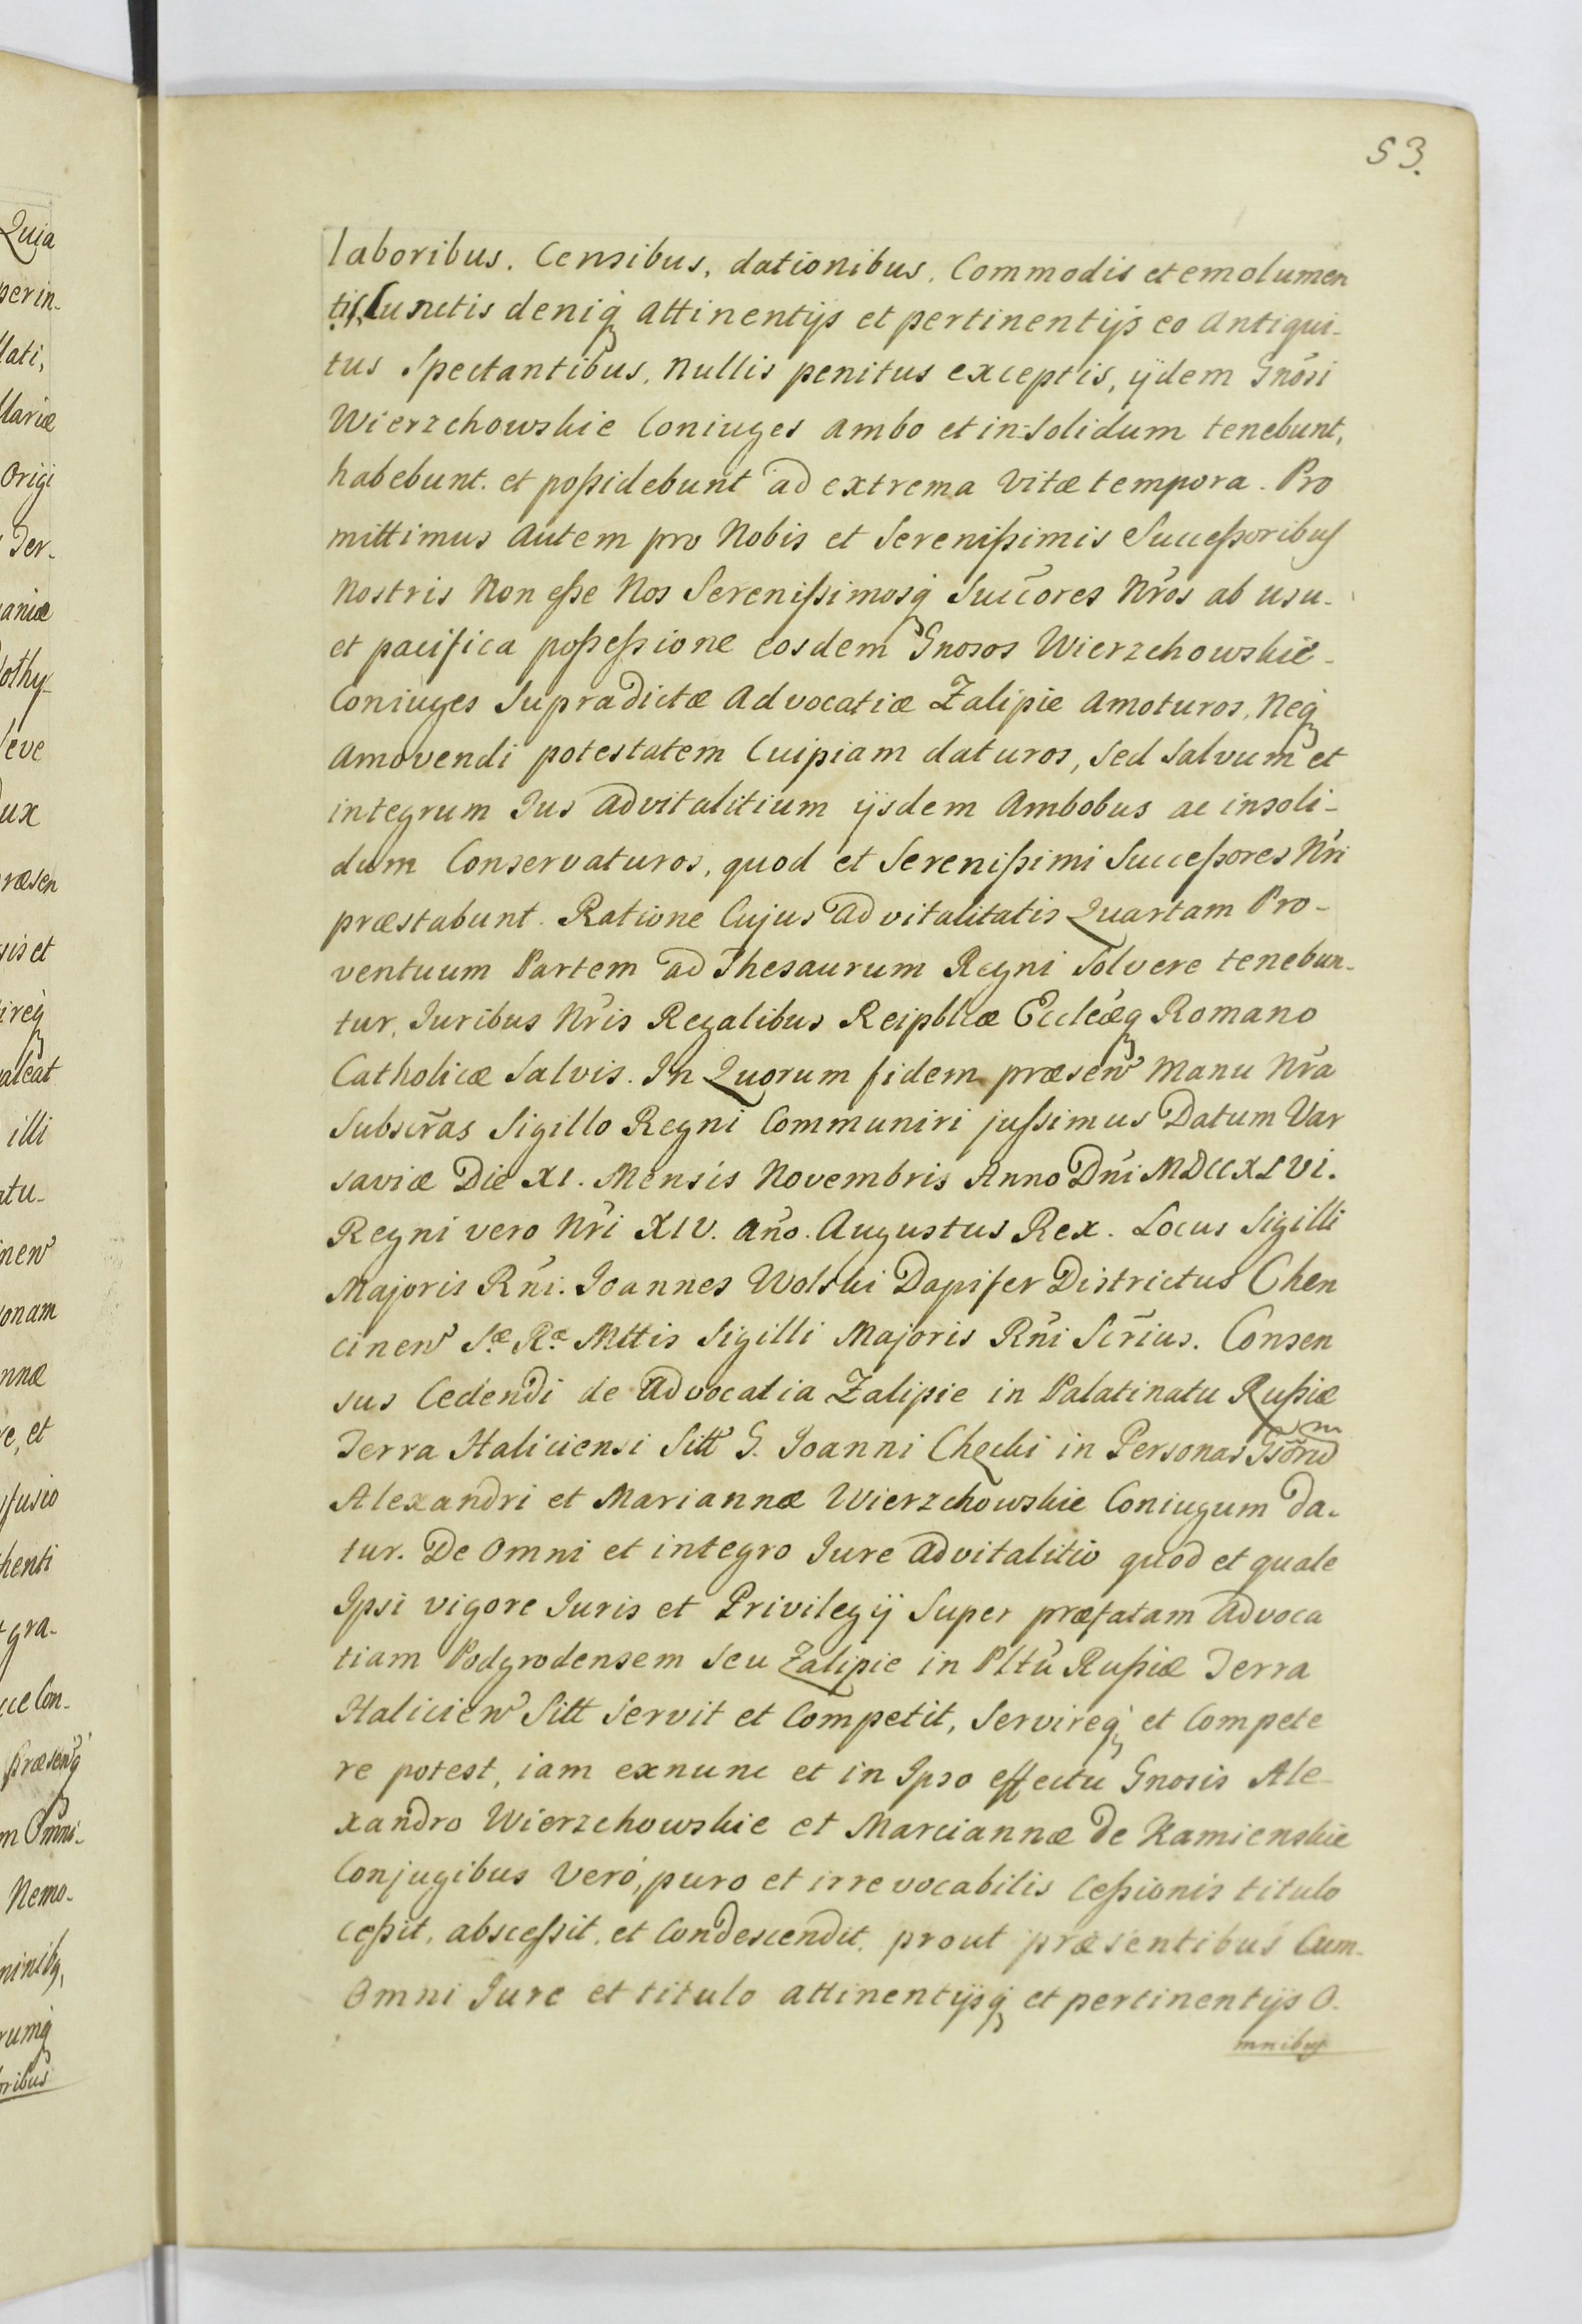 53.
laboribus. Censibus, dationibus. Commodis et emolumen
tis, Cunctis deniq́ꝫ attinentijs et pertinentijs eo Antiqui-
tus Spectantibus, Nullis penitus exceptis, ijdem Gnősi
Wierzchowskie Coniuges ambo et in-solidum tenebunt,
habebunt. et poßidebunt ad extrema vitæ tempora. Pro
mittimus autem pro Nobis et Serenißimis Succeßoribus
Nostris Non eße Nos Serenißimosq́ꝫ Succ̃ores Nr̃os ab usu-
et pacifica poßeßione eosdem Gnosos Wierzchowskie-
Coniuges Supradictæ Advocatiæ Zalipie Amoturos, Neq́ꝫ
Amovendi potestatem Cuipiam daturos, sed salvum et
integrum Jus advitalitium ijsdem Ambobus ac insoli-
dum Conservaturos, quod et Serenißimi Succeßores Nr̃i
præstabunt. Ratione Cujus Advitalitatis Quartam Pro-
ventuum Partem ad Thesaurum Regni Solvere tenebun-
tur, Juribus Nr̃is Regalibus Reipblicæ Eccleæq́ꝫ Romano
Catholicæ Salvis. In Quorum fidem præsen̛ Manu Nr̃a
Subscr̃as Sigillo Regni Communiri jußimus Datum Var
saviæ Die XI. Mensis Novembris Anno Dn̄i MDCCXLVI.
Regni vero Nr̃i XIV. Año. Augustus Rex. Locus Sigilli
Majoris Rñi. Joannes Wolski Dapifer Districtus Chen
cinen̛ Sæ Ræ Mttis Sigilli Majoris Rñi Scr̃ius. Consen
sus Cedendi de Advocatia Zalipie in Palatinatu Rußiæ
Terra Haliciensi Sitt̛ G. Joanni Checki in Personas Gsõrum
Alexandri et Mariannæ Wierzchowskie Coniugum da-
tur. De Omni et integro Jure advitalitio quod et quale
Ipsi vigore Juris et Privilegij Super præfatam Advoca
tiam Podgrodensem seu Zalipie in Pltu̇ Rußiæ Terra
Halicien̛ Sitt Servit et Competit, Servireq́ꝫ et Compete
re potest, iam exnunc et in Ipso effectu Gnosis Ale-
xandro Wierzchowskie et Marciannæ de Kamienskie
Conjugibus Veró, puro et irrevocabilis Ceßionis titulo
ceßit, absceßit. et Condescendit, prout præsentibus Cum-
Omni Jure et titulo attinentijsq́ꝫ et pertinentijs O-
mnibus